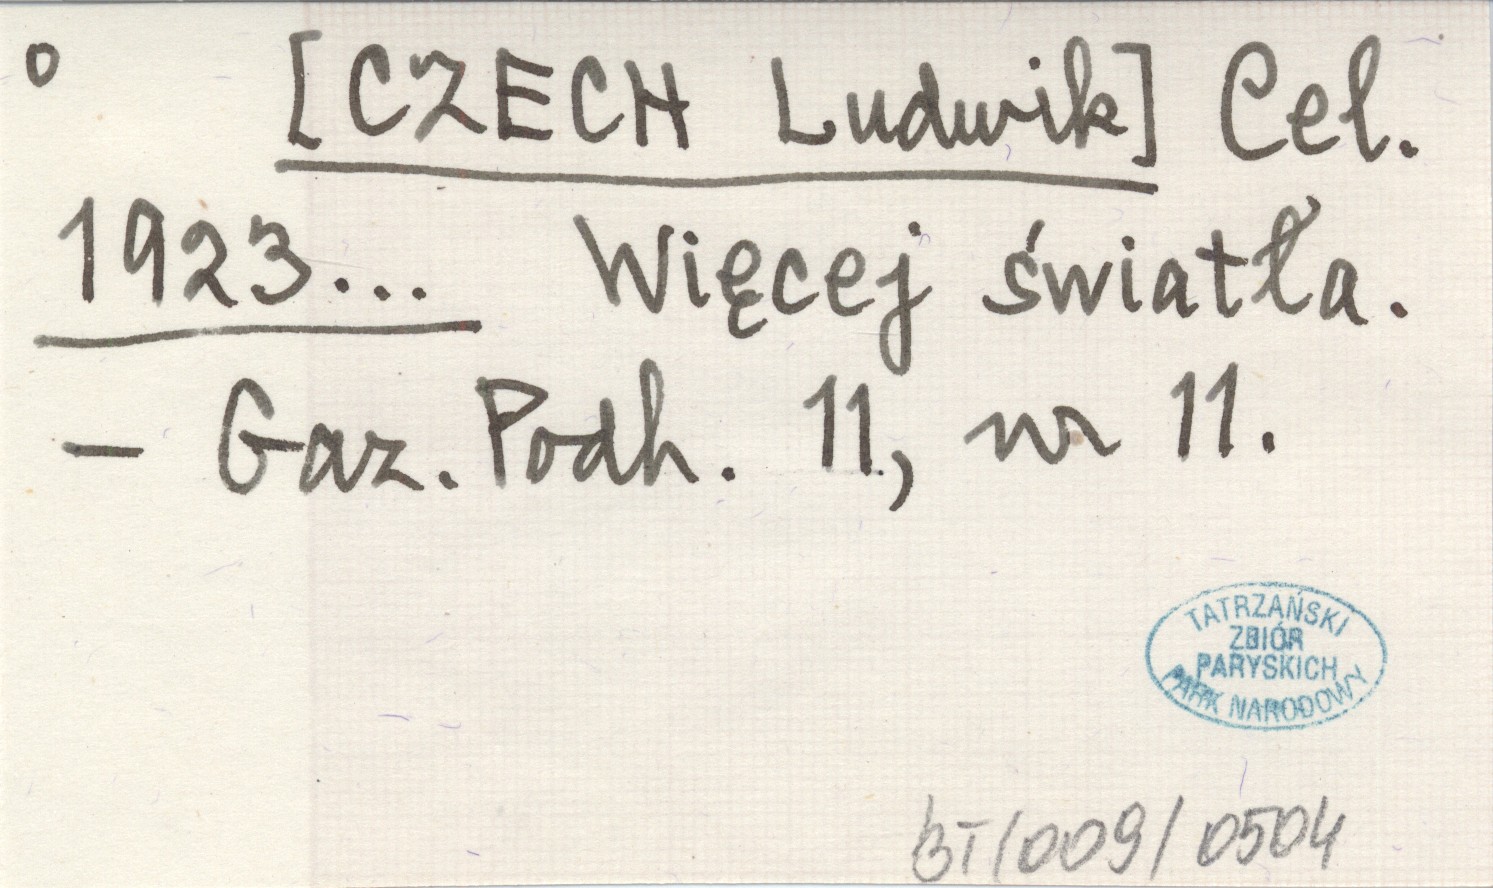 o [CZECH Ludwik] Cel.
1923... Więcej światła.
– Gaz. Podh. 11, nr 11.
TATRZAŃSKI
ZBIÓR
PARYSKICH
PARK NARODOWY
BT/009/0504